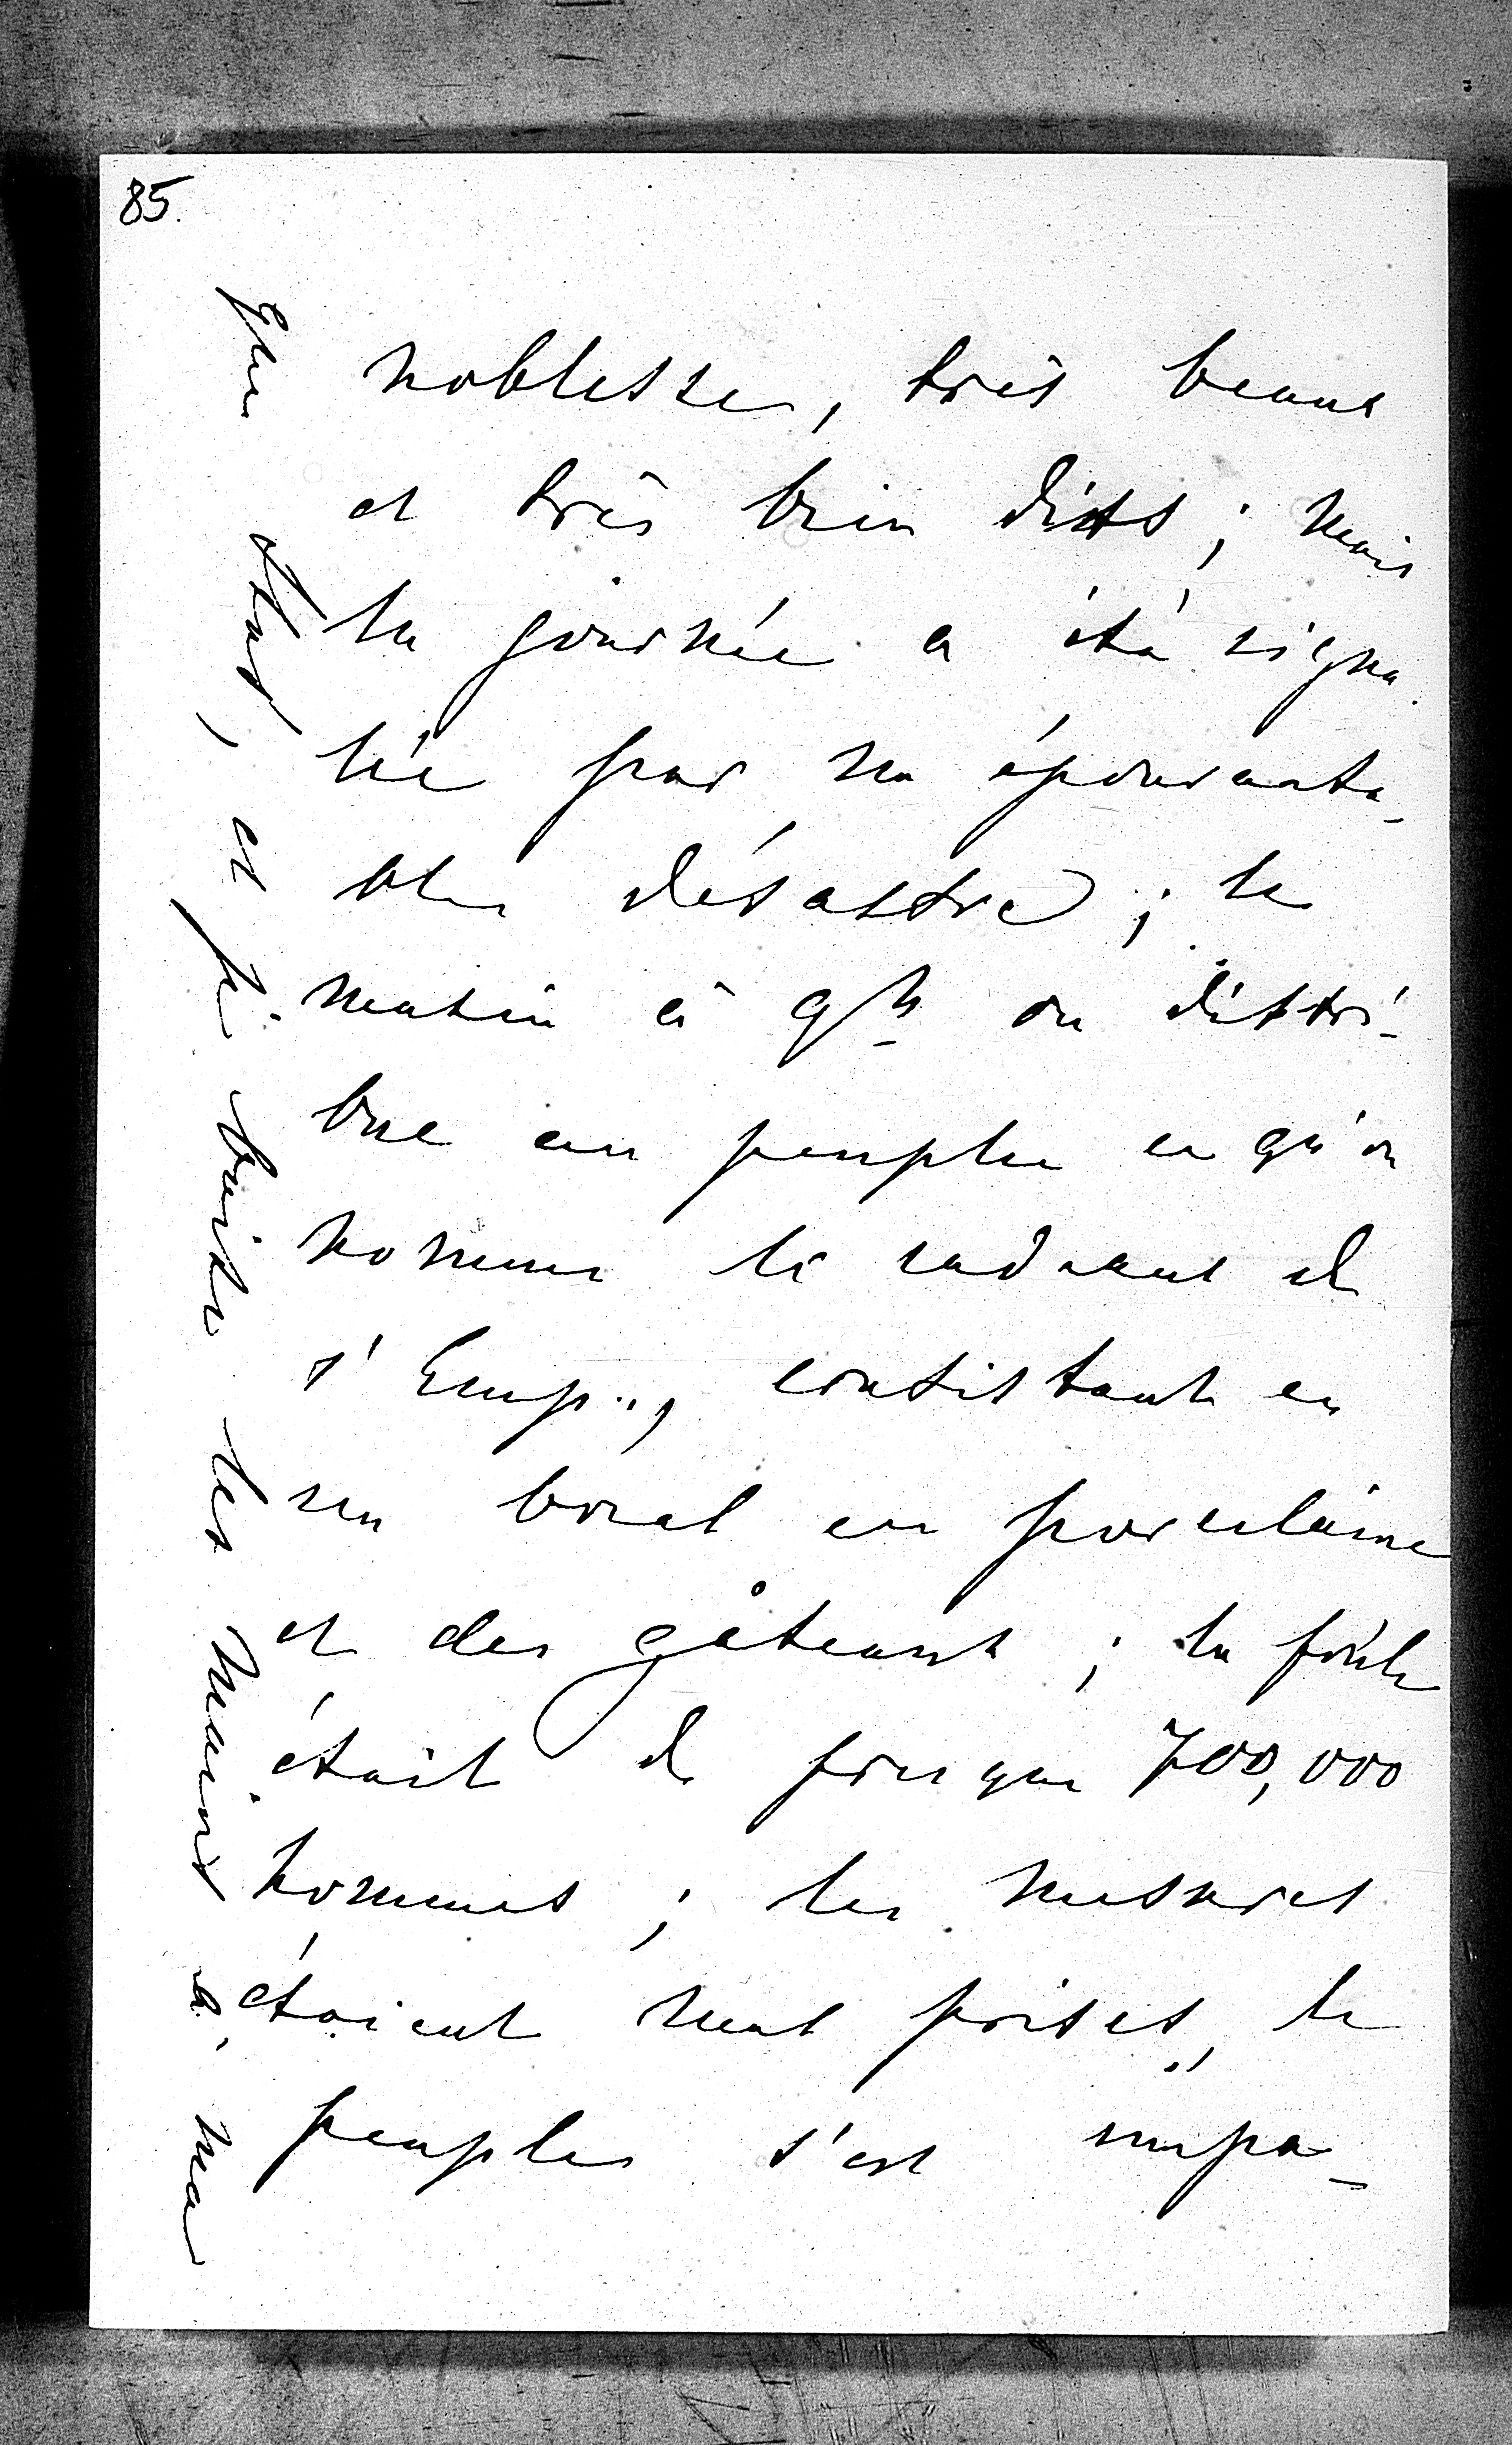 85.
noblesse, très beaux
et très bien dits ; mais
la journée a été signa
lée par un épouvanta-
ble désastre ; le
matin à 9h on distri-
bue au peuple ce qu'on
nomme le cadeau de
l'Emp., consistant en
un bocal en porcelaine
et des gâteaux ; la foule
était de presque 700,000
hommes ; les mesures
étaient mal prises, le
peuple s'est impa-
et je baise les mains à ma